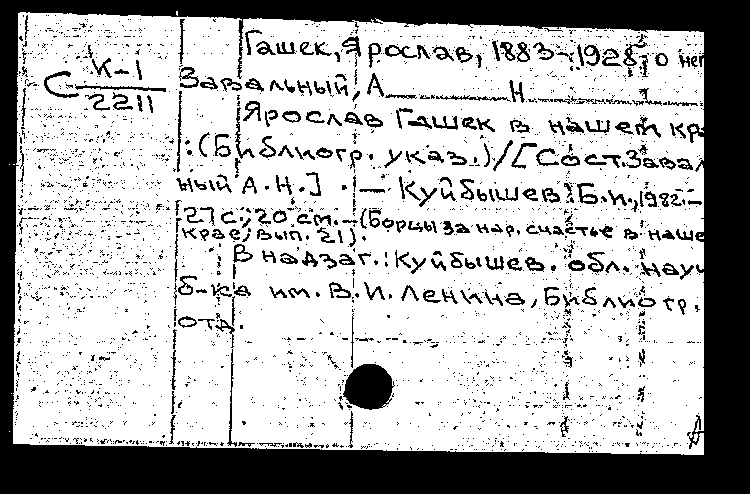 Гашек, Ярослав, 1883-1928, о нег
С К-1
2211
Завальный, А Н
Ярослав Гашек в нашем кра
:(Библиогр. указ.)/[Сост.Завал
ный А.Н.] . — Куйбышев:Б.и.,1982.-
27с.;20 см.-(Борцы за нар. счастье в наше
крае; Вып. 21).
В надзаг.: Куйбышев. обл. науч
б-ка им. В.И. Ленина, Библиогр.
отд.